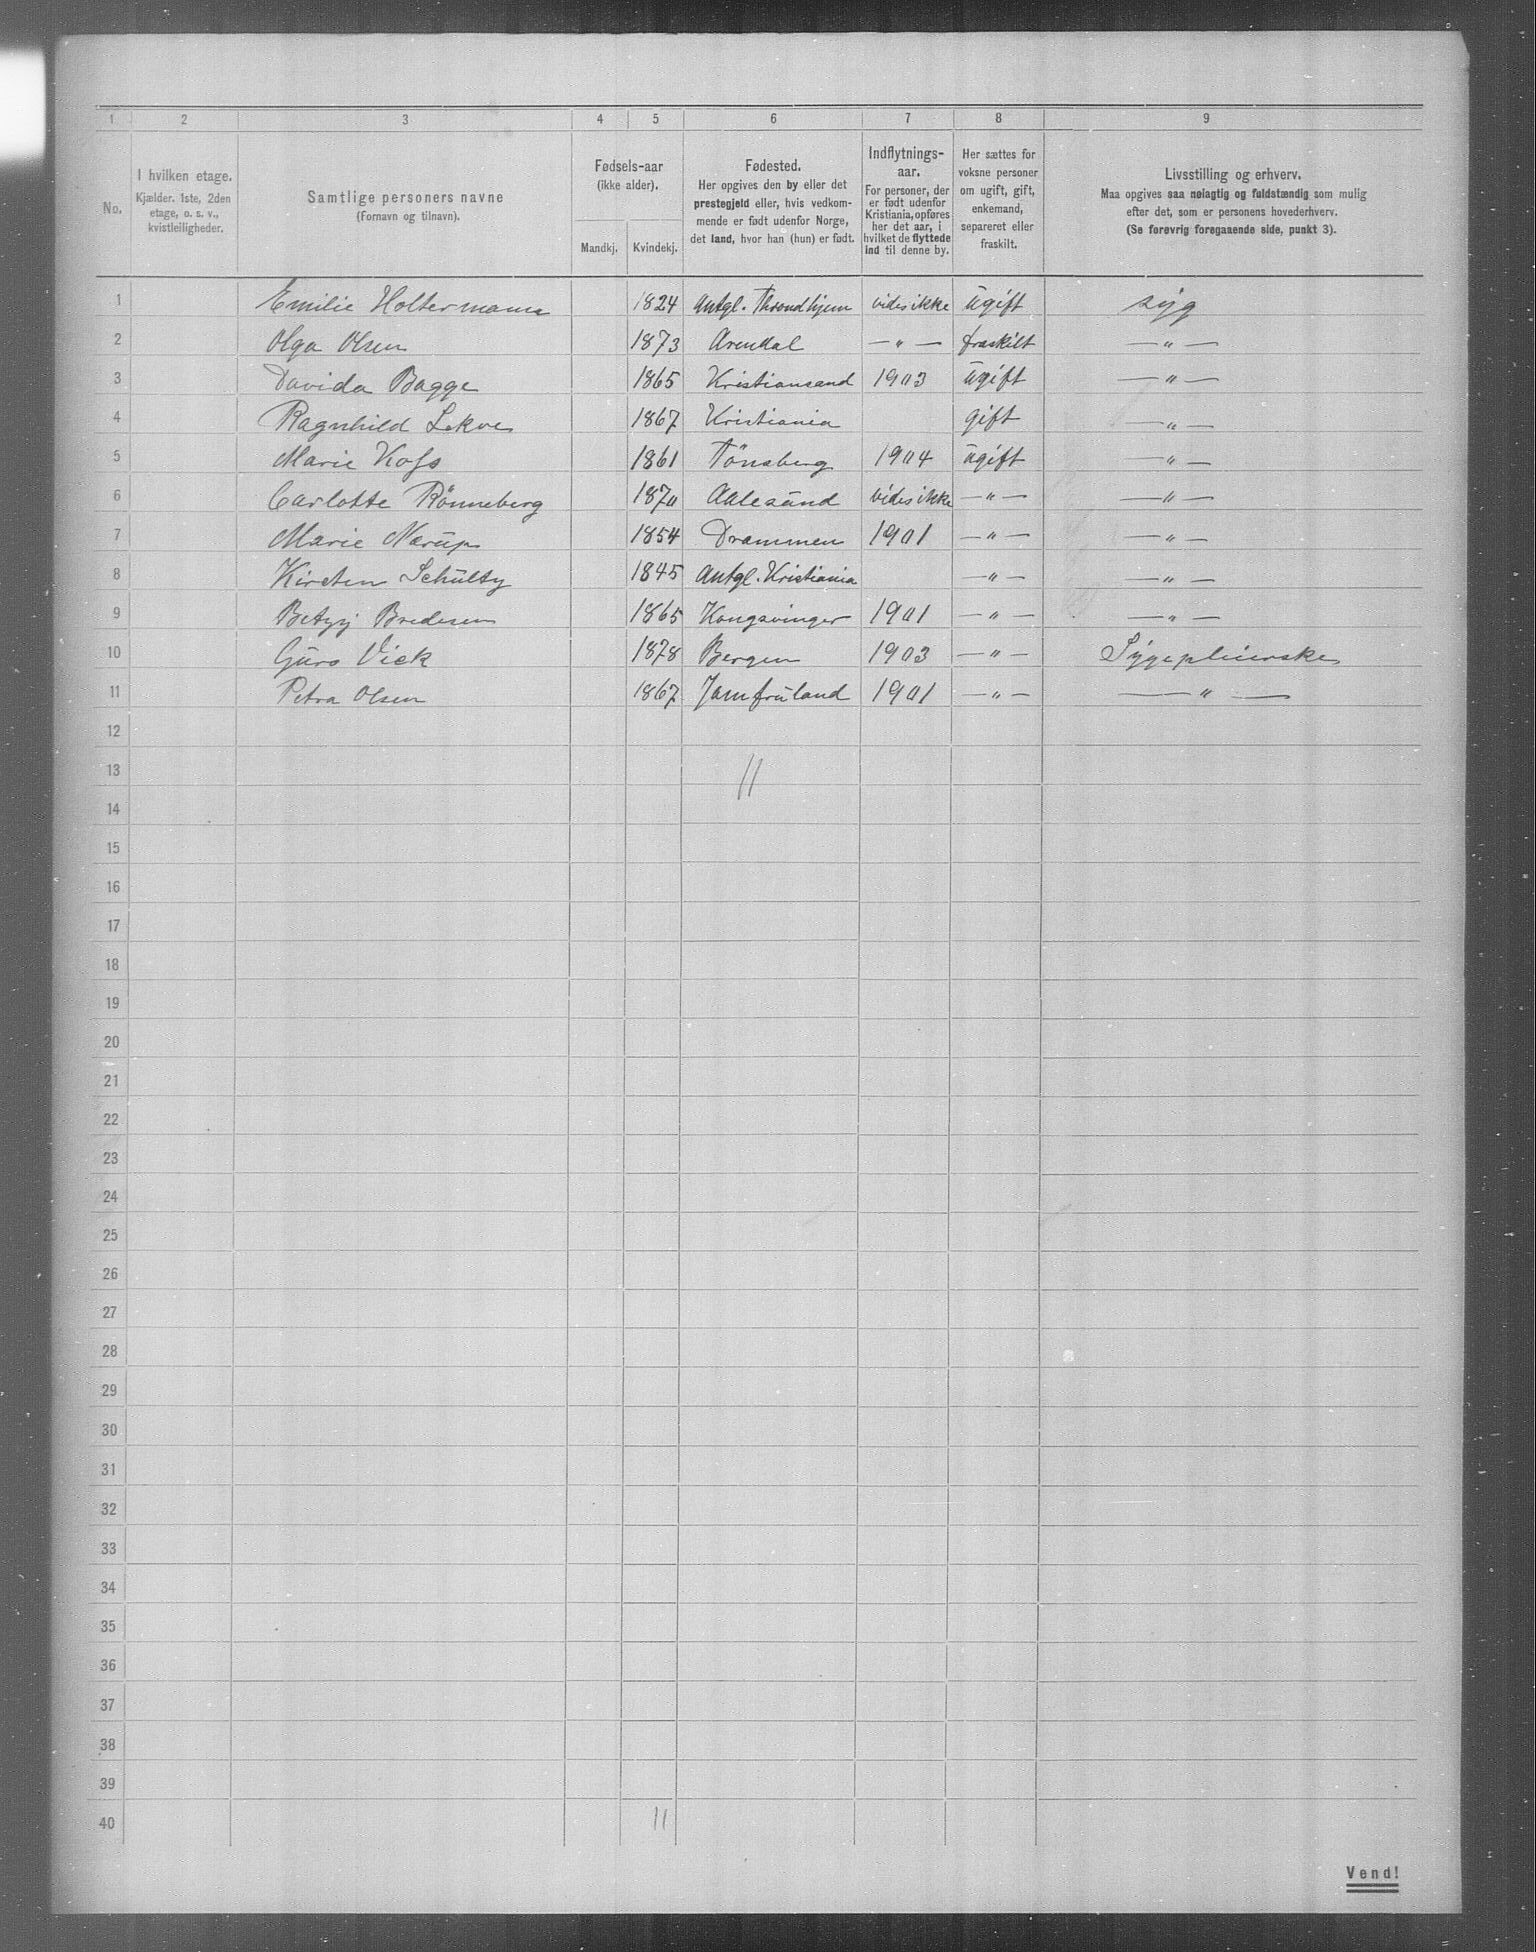 1 2 3 4 5 6 7 8 9
No.
I hvilken etage.
Kjælder. 1ste, 2den
etage, o. s. v.,
kvistleiligheder.
Samtlige personers navne
(Fornavn og tilnavn).
Fødsels-aar
(ikke alder).
Mandkj. Kvindekj.
Fødested.
Her opgives den by eller det
prestegjeld eller, hvis vedkom-
mende er født udenfor Norge,
det land, hvor han (hun) er født.
Indflytnings-
aar.
For personer, der
er født udenfor
Kristiania, opføres
her det aar, i
hvilket de flyttede
ind til denne by.
Her sættes for
voksne personer
om ugift, gift,
enkemand,
separeret eller
fraskilt.
Livsstilling og erhverv.
Maa opgives saa nøiagtig og fuldstændig som mulig
efter det, som er personens hovederhverv.
(Se forøvrig foregaaende side, punkt 3).
1 Emilie Holtermann 1824 Antgl. Throndhjem vides ikke ugift syg
2 Olga Olsen 1873 Arendal — " — fraskilt — " —
3 Davida Bagge 1865 Kristiansand 1903 ugift — " —
4 Ragnhild Lekve 1867 Kristiania gift — " —
5 Marie 1861 Tönsberg 1904 ugift — " —
6 Carlotte Rönneberg 1870 Aalesund vides ikke — " — — " —
7 Marie Narup 1854 Drammen 1901 — " — — " —
8 Kirsten 1845 Antgl. Kristiania — " — — " —
9 Betzy Bredesen 1865 Kongsvinger 1901 — " — — " —
10 Guro Vick 1878 Bergen 1903 — " — Sygepleierske
11 Petra Olsen 1867 Jomfruland 1901 — " — — " —
12
13 11
14
15
16
17
18
19
20
21
22
23
24
25
26
27
28
29
30
31
32
33
34
35
36
37
38
39
40 11
Vend!